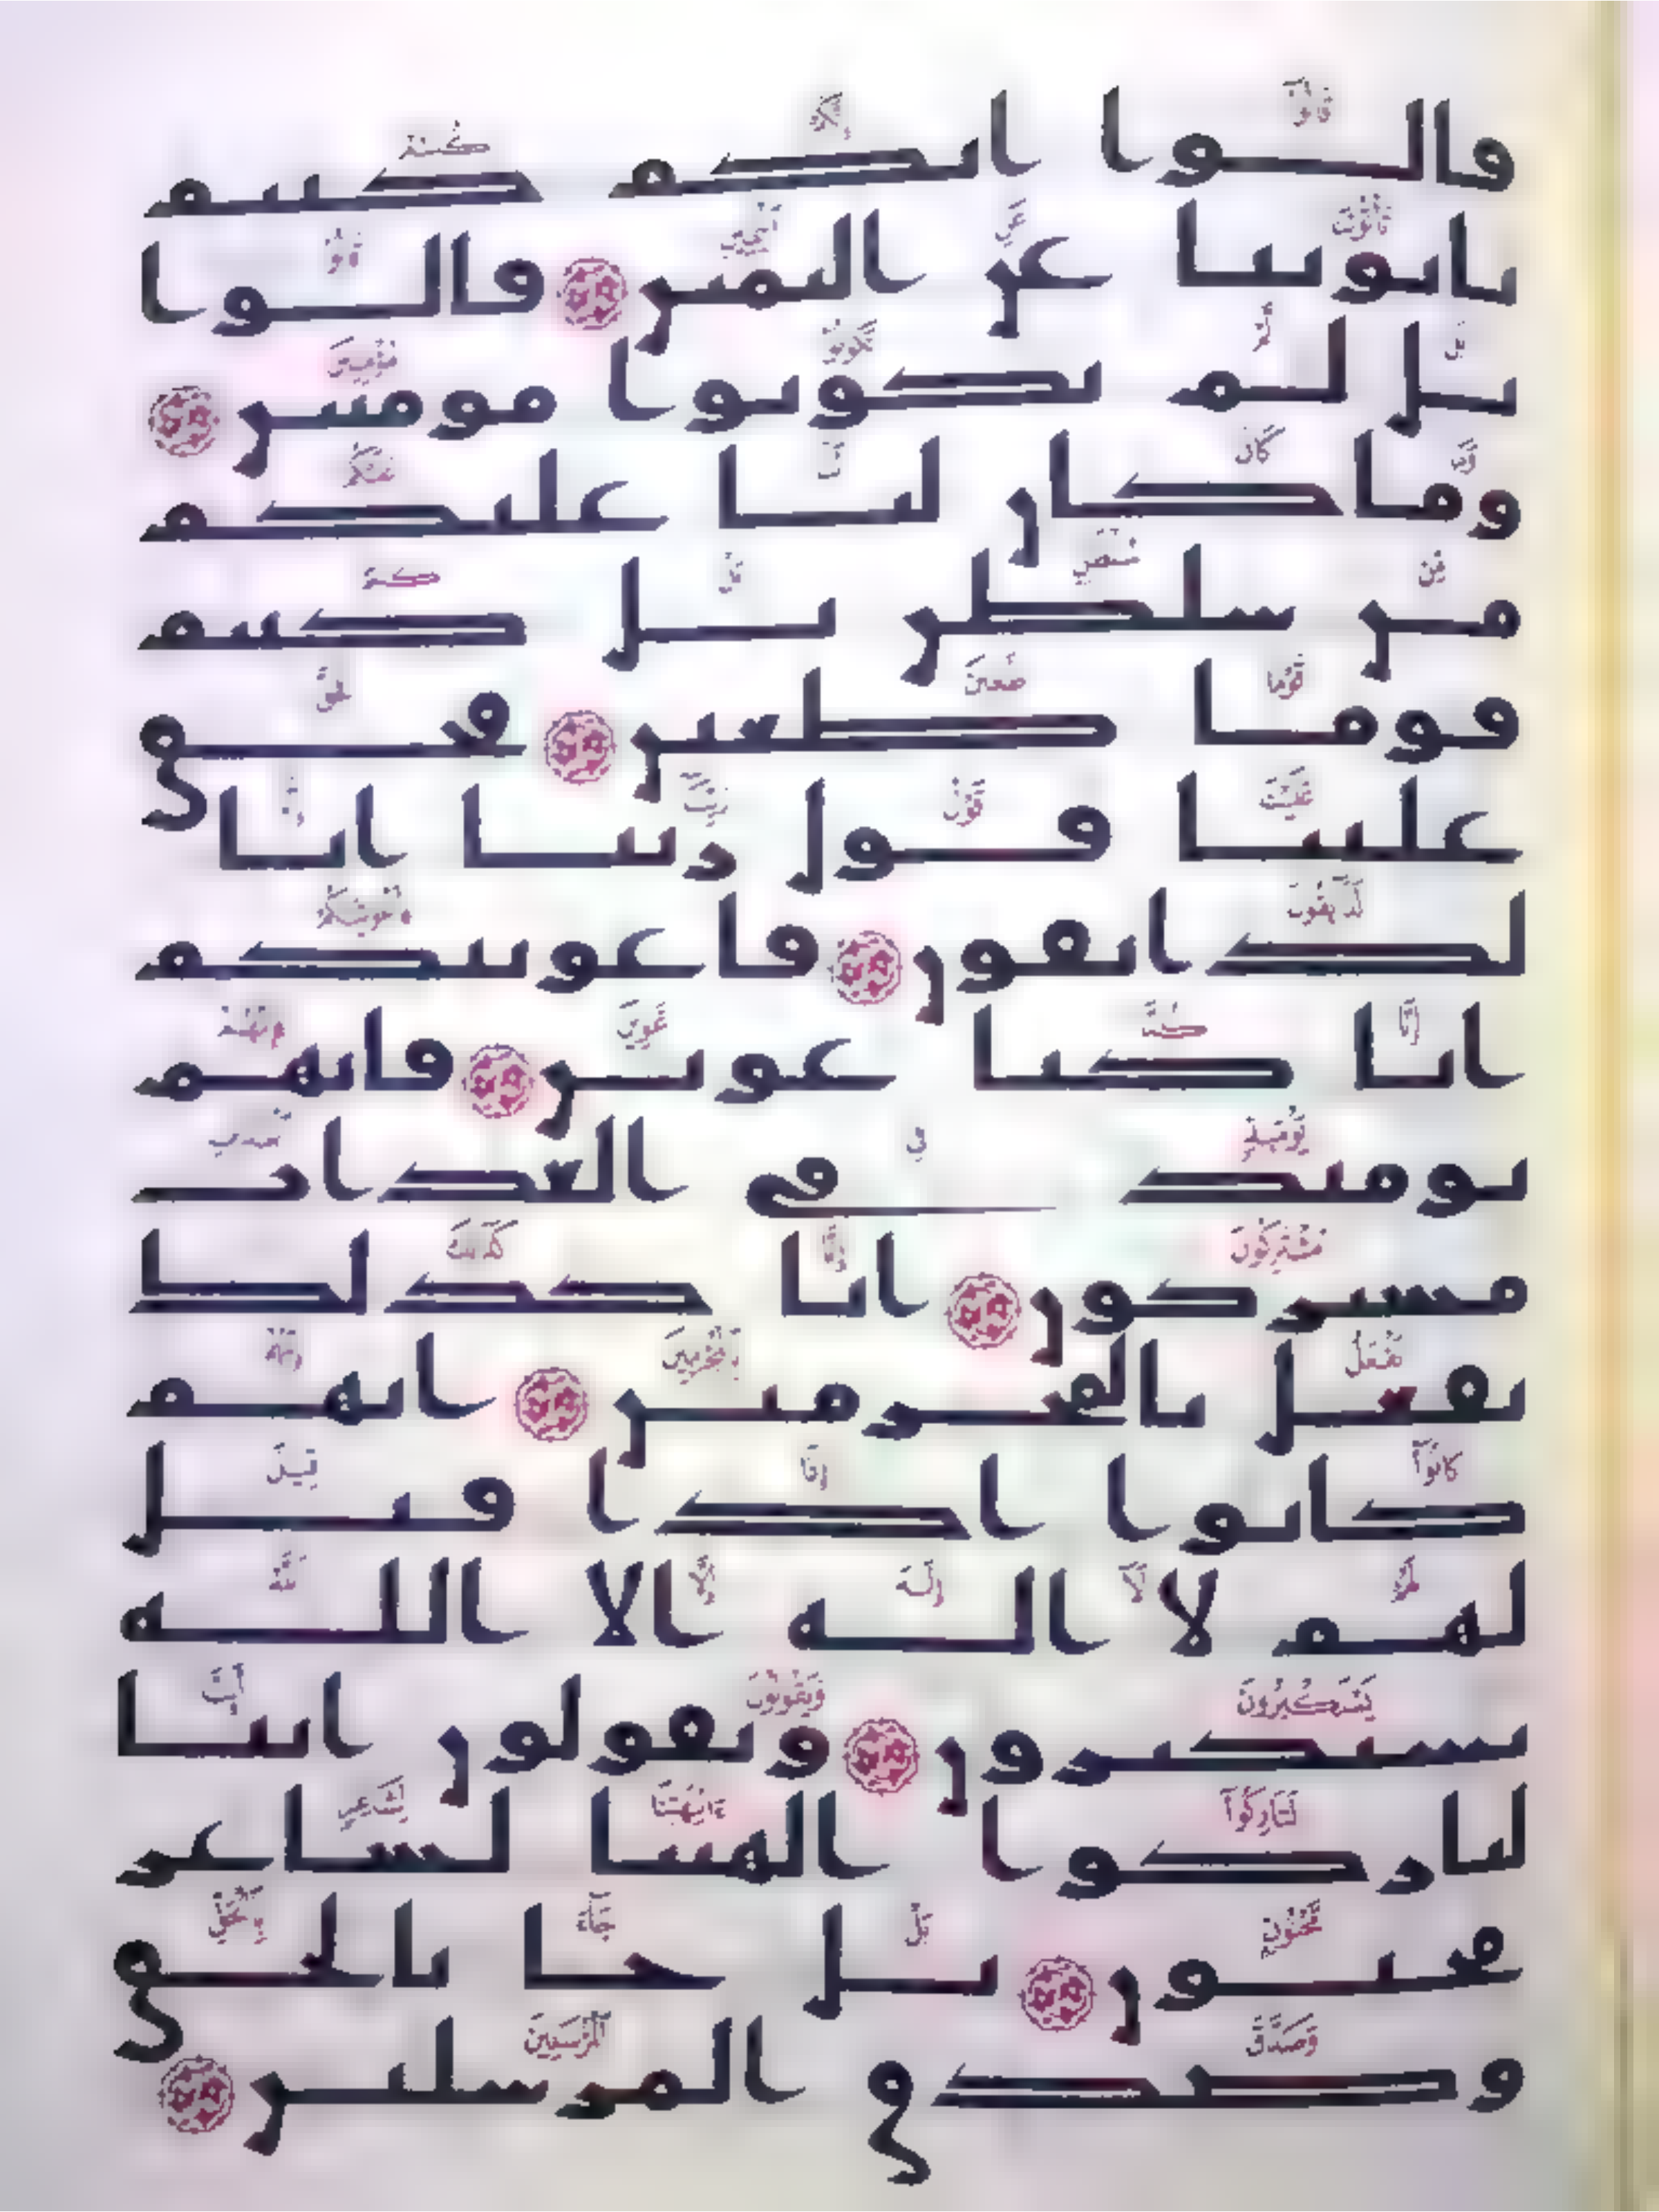 قالوا انكم كنتم
تاتوننا عن اليمين قالوا
بل لم تكونوا مومنين
وما كان لنا عليكم
من سلطن بل كنتم
قوما طغين فحق
علينا قول ربنا انا
لذايقون فاغوينكم
انا كنا غوين فانهم
يوميذ في العذاب
مشتركون انا كذلك
نفعل بالمجرمين انهم
كانوا اذا قيل
لهم لا اله الا الله
يستكبرون ويقولون اينا
لتاركوا الهتنا لشاعر
مجنون بل جا بالحق
وصدق المرسلين